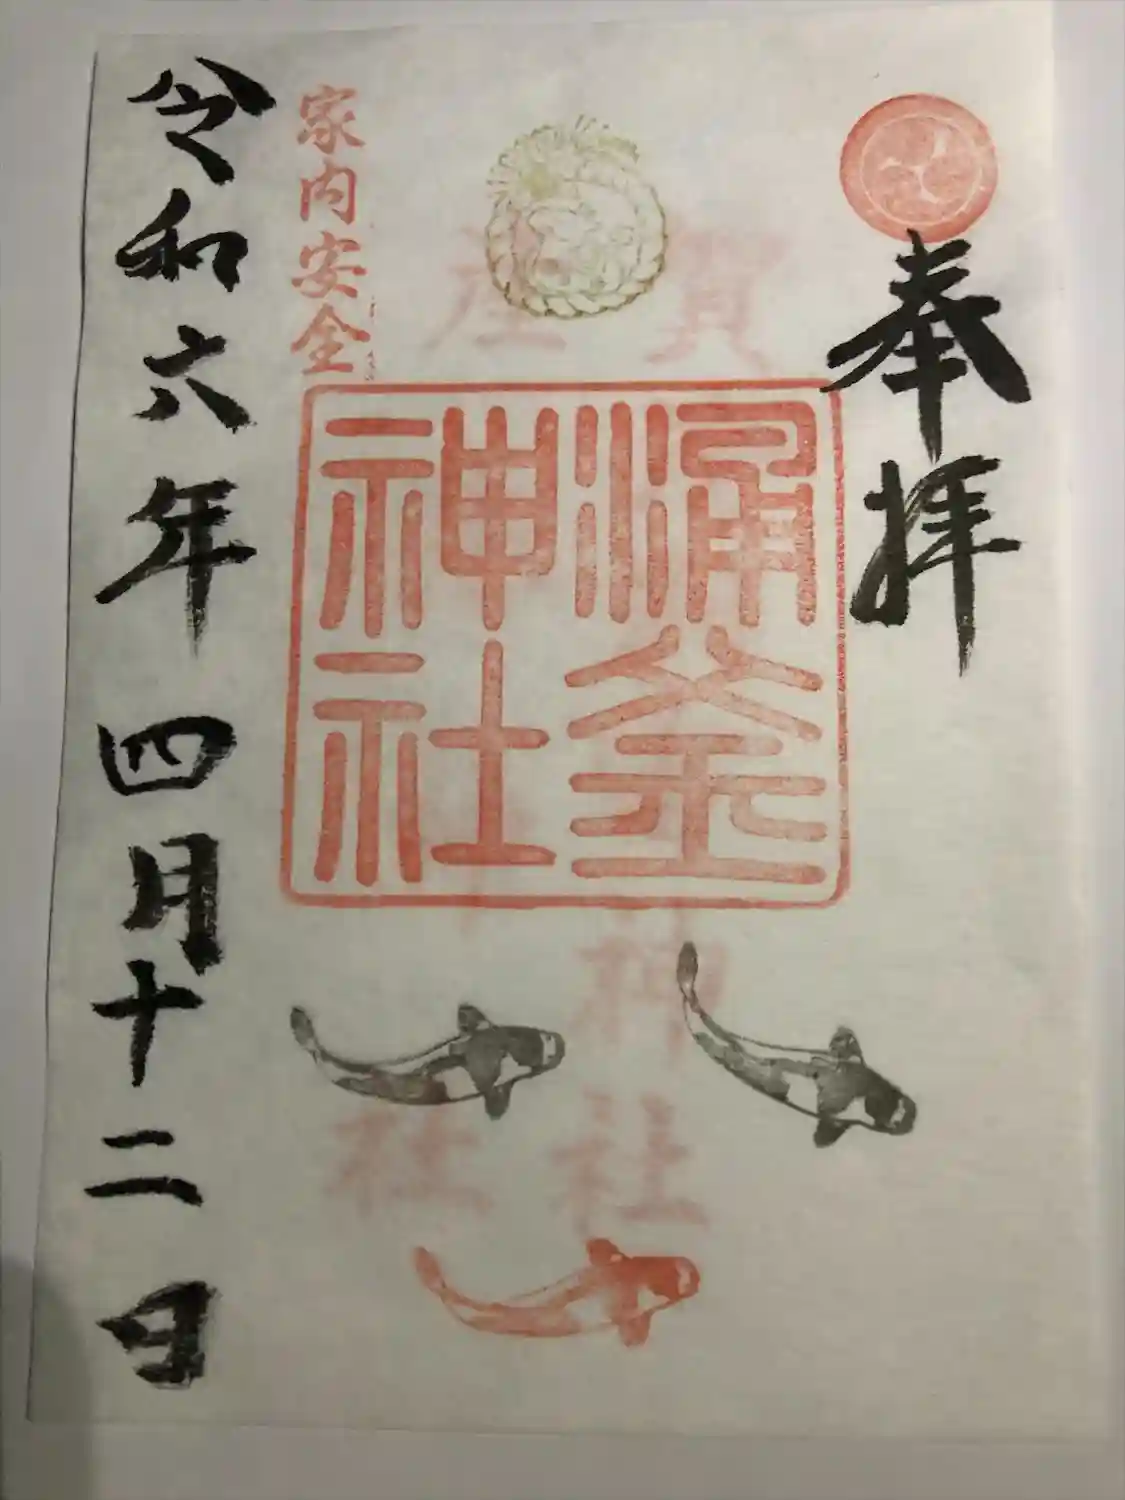 奉拝
涌釜
神社
家内安全
令和六年四月十二日